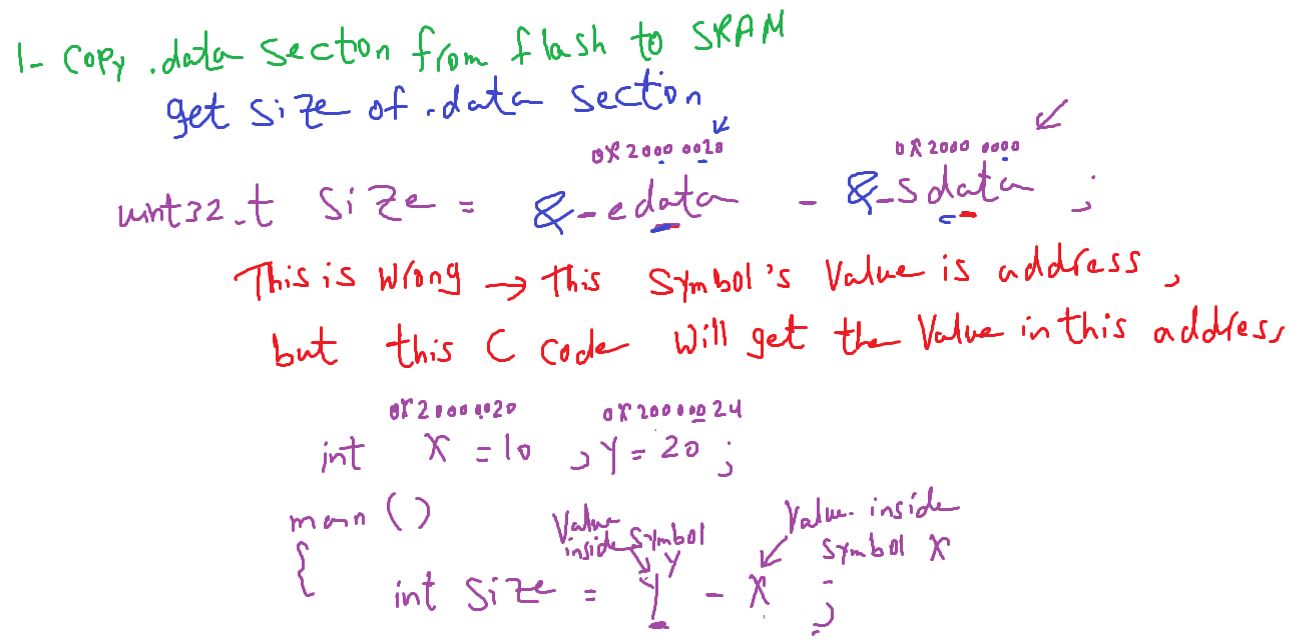 1- Copy .data secton from flash to SRAM
get size of .data secton
0x2000 0028 0x2000 0000
uint32_t size = &_edata - &_sdata ;
This is wrong → this symbol's value is address,
but this C code will get the value in this address
0x20000020 0x20000024
int X = 10 , Y = 20 ;
main ()
{
Value inside symbol Y
Value inside symbol X
int size = Y - X ;